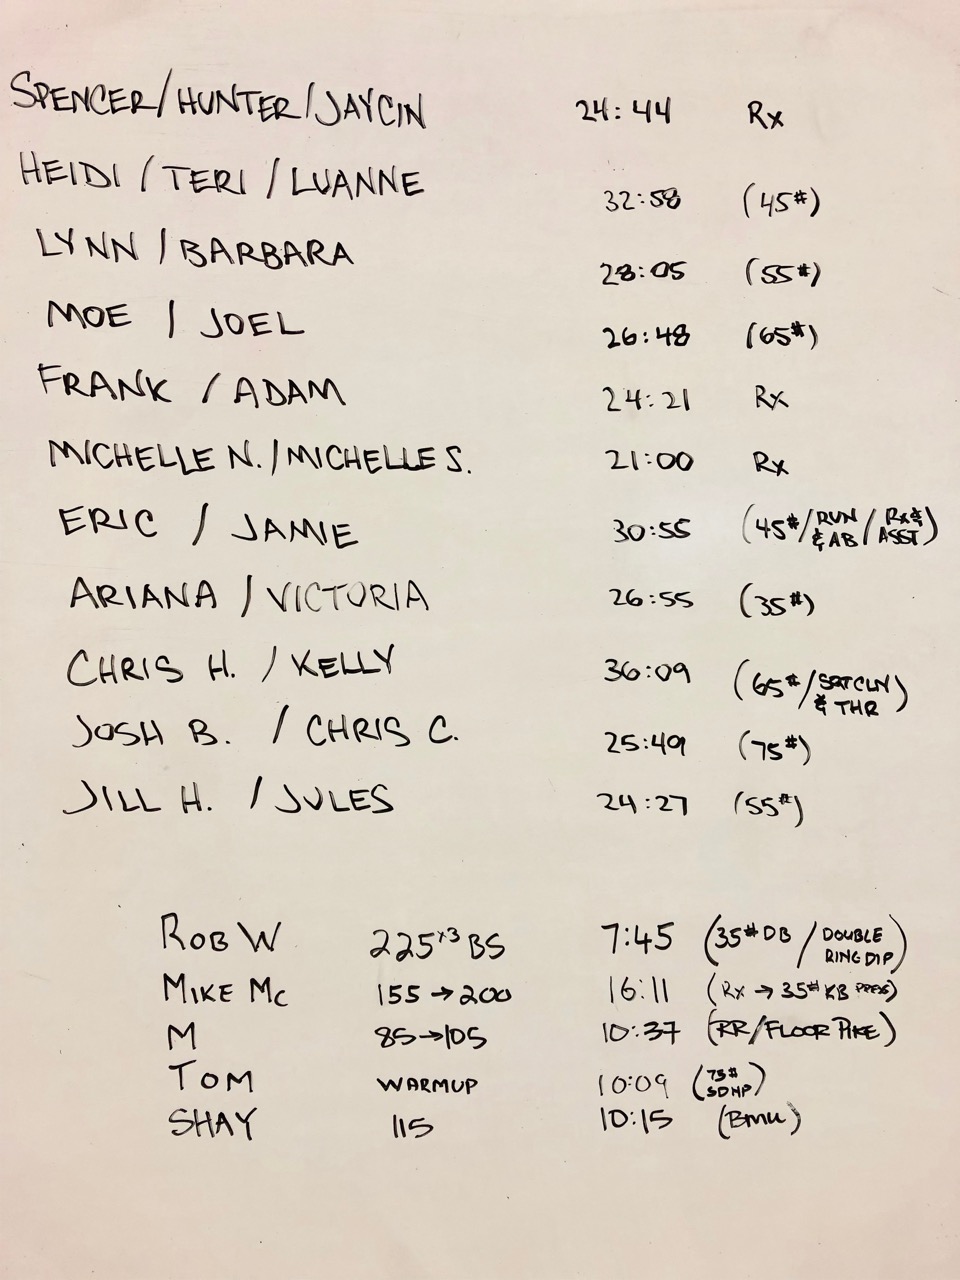 SPENCER/HUNTER/JAYCIN 24:44 Rx
HEIDI / TERI / LUANNE 32:58 (45#)
LYNN / BARBARA 28:05 (55#)
MOE / JOEL 26:48 (65#)
FRANK / ADAM 24:21 Rx
MICHELLE N. / MICHELLE S. 21:00 Rx
ERIC / JAMIE 30:55 (45#/RUN & AB/Rx & ASST)
ARIANA / VICTORIA 26:55 (35#)
CHRIS H. / KELLY 36:09 (65#/SQT CLN & THR)
JOSH B. / CHRIS C. 25:49 (75#)
JILL H. / JULES 24:27 (55#)
ROB W 225×3 BS 7:45 (35# DB / DOUBLE RING DIP)
MIKE MC 155→200 16:11 (Rx → 35# KB PRESS)
M 85→105 10:37 (RR/FLOOR PIKE)
TOM WARMUP 10:09 (75# SDHP)
SHAY 115 10:15 (BMU)